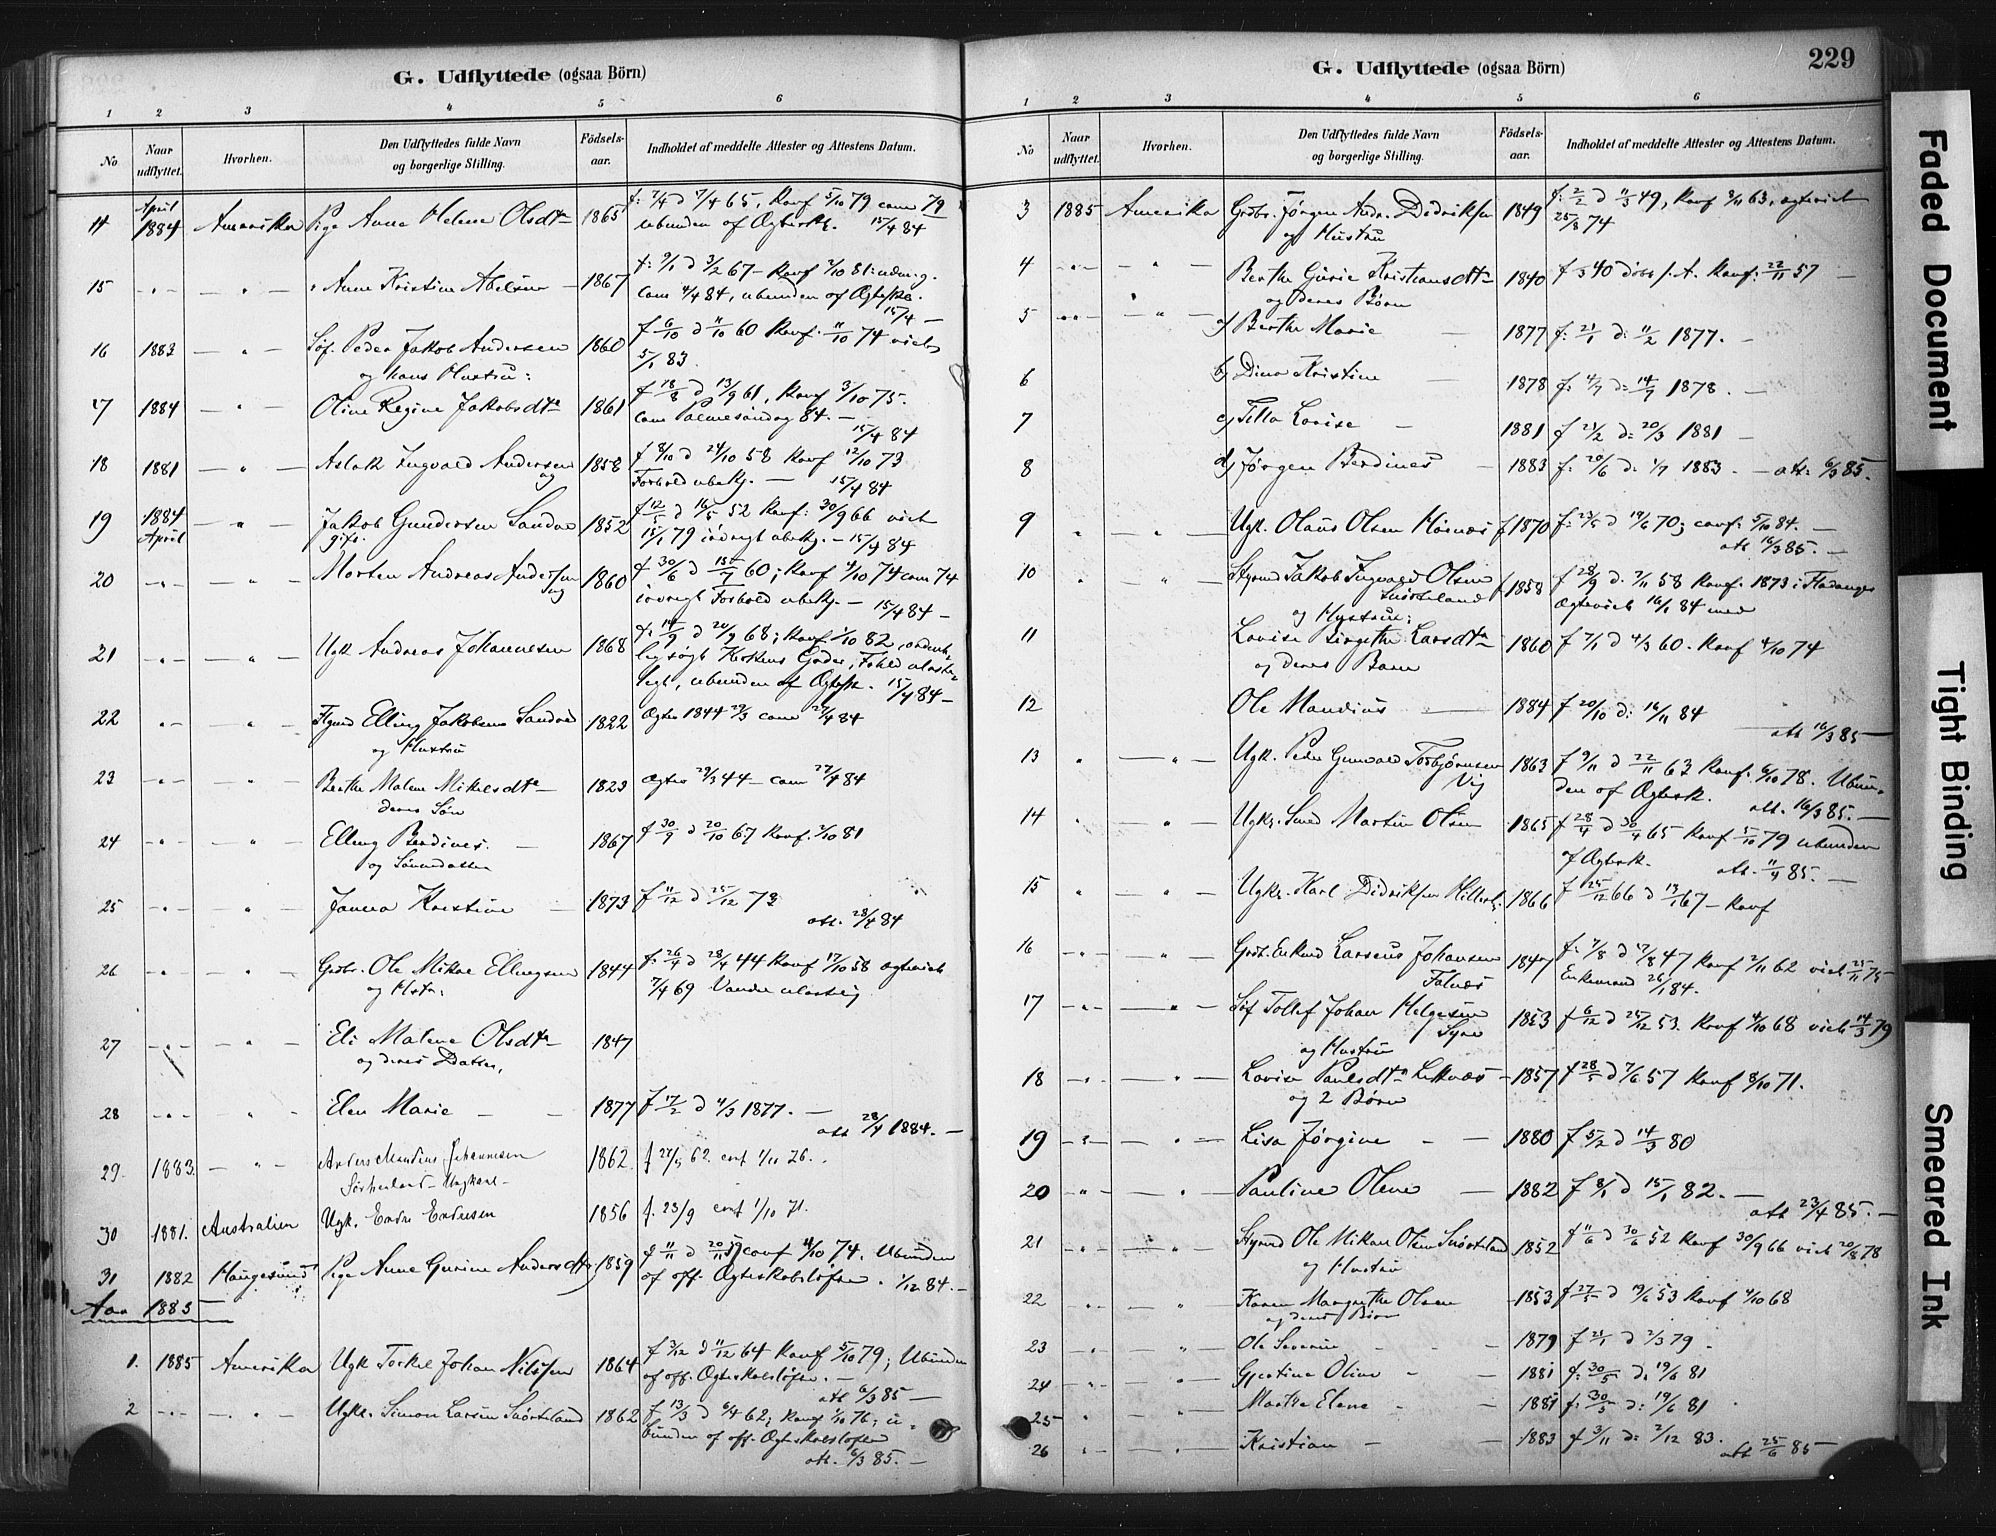 G. Udflyttede (ogsaa Börn)
1 2 3 4 5 6
No
Naar udflyttet.
Hvorhen.
Den Udflyttedes fulde Navn og borgerlige Stilling.
Födsels-aar.
Indholdet af meddelte Attester og Attestens Datum.
14 April 1884 Amerika Pige Anne Helene Olsdtr 1865 f: 7/4 d 17/4 65, Konf 5/10 79 com 79
ubunden af Ægtesk. 15/4 84
15 Anne Kristine Abelsen 1867
com 4/4 84, ubunden af Ægtesk.
15/4
16 1883 Söf. Peder Jakob Andersen 1860 f 6/10 d 11/10 60 Konf. 11/10 74 viet
og hans Hustru: 5/1 83
17 1884 Oline Regine Jakobsdtr 1861 f 18/8 d 13/9 61, Konf 3/10 75.
com Palmesöndag 84.
15/4 84
18 1881 Aslak Ingvald Andersen 1858 f 8/10 d 24/10 58 Konf 12/10 73
og Forhold ubekj. 15/4 84
19 1884 April Jakob Gundersen Sandve 1852 f 12/5 d 16/5 52 Konf: 30/9 66 viet
gift. 15/1 79 iövrigt ubekj. 15/4 84
20 Morten Andreas Andersen 1860 f 30/6 d 15/7 60; Konf 4/10 74 com 74
iövrigt Forhold ubekj. 15/4 84
21 Ugk Andreas Johannesen 1868 f: 14/9 d 20/9 68; Konf 1/10 82,
ubunden af Ægtesk. 15/4 84
22 Elling Jakobsen Sandve 1822 Ægtev 1844 29/3 com 27/4 84
og Hustru
23 Berthe Malene Mikelsdtr 1823 Ægtev 29/3 44 com 27/4 84
deres Sön
24 Elling Berdines 1867 f 30/9 d 20/10 67 Konf. 2/10 81
og Sönnedatter
25 Kristine 1873 f 11/12 d 25/12 73
att. 28/4 84
26 Grdbr. Ole Mikal Ellingsen 1844 f: 26/4 d 28/4 44 Konf 17/10 58 Ægteviet
og Hstr: 7/4 69 Vandel ulastelig
27 Eli Malene Olsdtr 1847
og deres Datter,
28 Elen Marie 1877 f 17/2 d 4/3 1877.
att 28/4 1884.
29 1883 Anders Mandius Johannesen 1862. f 27/5 62. conf 1/11 76.
30 1881. Australien Ugk. Endre Endresen 1856 f. 23/9 conf 1/10 71.
31 1882 Haugesund Pige Anne Gurine Andersdtr 1859 f 11/11 d 20/11 59 conf 11/10 74. Ubunden
af off. Ægteskabslöfter. 1/12 84.
Aar 1885
1. 1885 Amerika Ugk Torkel Johan Nilssen 1864 f 3/12 d 11/12 64 Konf 5/10 79; Ubunden
af off. Ægteskabslöfter.
att 6/3 85
2 Ugkr. Simon Larsen Snörteland 1862 f 13/3 d 6/4 62; Konf 1/10 76; u-
bunden af off. Ægteskabslöfter
att. 6/3 85.
G. Udflyttede (ogsaa Börn)
229
1 2 3 4 5 6
No
Naar udflyttet.
Hvorhen.
Den Udflyttedes fulde Navn og borgerlige Stilling.
Födsels-aar.
Indholdet af meddelte Attester og Attestens Datum.
3 1885 Amerika Grdbr. Jörgen Andr. Didriksen 1849 f: 2/2 d 11/3 49, Konf 8/11 63, ægteviet
og Hustru 25/8 74
4 Berthe Gurie Kristiansdtr 1840 Konf: 22/11 57
og deres Börn
5 a) Berthe Marie 1877 f: 21/1 d: 11/2 1877.
6 b) Dina Kristine 1878 f: 4/7 d: 14/7 1878.
7 c) Tilla Lovise 1881 f 21/2 d: 20/3 1881
8 d) Jörgen Berdines 1883 f: 20/6 d: 1/7 1883. att: 6/3 85.
9 Ugk. Olaus Olsen 1870 f: 23/5 d 19/6 70; conf: 5/10 84.
att 16/3 85.
10 Styrmd Jakob Ingvald Olsen 1858 f 28/9 d. 7/11 58 Konf. 1873 i
Snörteland Ægteviet 16/1 84 med
og Hustru:
11 Lovise Birgithe Larsdtr 1860 f 7/1 d 4/3 60. Konf 4/10 74
og deres Barn
12 Ole Mandius 1884 f 20/10 d: 16/11 84
att 16/3 85
13 Ugk. Peder Gunvald Torbjörnsen 1863 f 9/11 d 22/11 63 Konf. 6/10 78. Ubun-
Vig den af Ægtesk. att. 16/3 85.
14 Ugkr. Smed Martin Olsen 1865 f 28/4 d 30/4 65 Konf 5/10 79 ubunden
af Ægtesk. att. 11/4 85.
15 Ugkr. Karl Didriksen 1866 f 25/12 66 d 13/1 67 Konf
16 Grdb. Enkmd Larseus Johansen 1847 f: 7/8 d 17/8 47 Konf 2/11 62 viet 25/11 75
Falnæs Enkemand 26/1 84.
17 Söf Tollef Johan Helgesen 1853 f 6/12 d 27/12 53. Konf 4/10 68 viet 14/3 79
Syre
og Hustru
18 Lovise Paulsdtr 1857 f 28/5 d 7/6 57 Konf 8/10 71.
og 2 Börn
19 Lisa Jörgine 1880 f 5/2 d 14/3 80
20 Pauline Olene 1882 f 8/1 d 15/1 82.
att 23/4 85.
21 Styrmd Ole Mikal Olsen Snörteland 1852 f 11/6 d 30/6 52 Konf 30/9 66 viet 20/8 78
og Hustru
22 Karen Margrethe Olsen 1853 f 27/5 d 19/6 53 Konf 4/10 68
og deres Börn
23 Ole Severin 1879 f 21/1 d 2/3 79
24 Gjertine Oline 1881 f: 30/5 d: 19/6 81
25 Marthe Elene 1881 f: 30/5 d: 19/6 81
26 Kristian 1883 f 3/11 d: 2/12 83.
att 25/6 85
Faded Document
Tight Binding
Smeared Ink